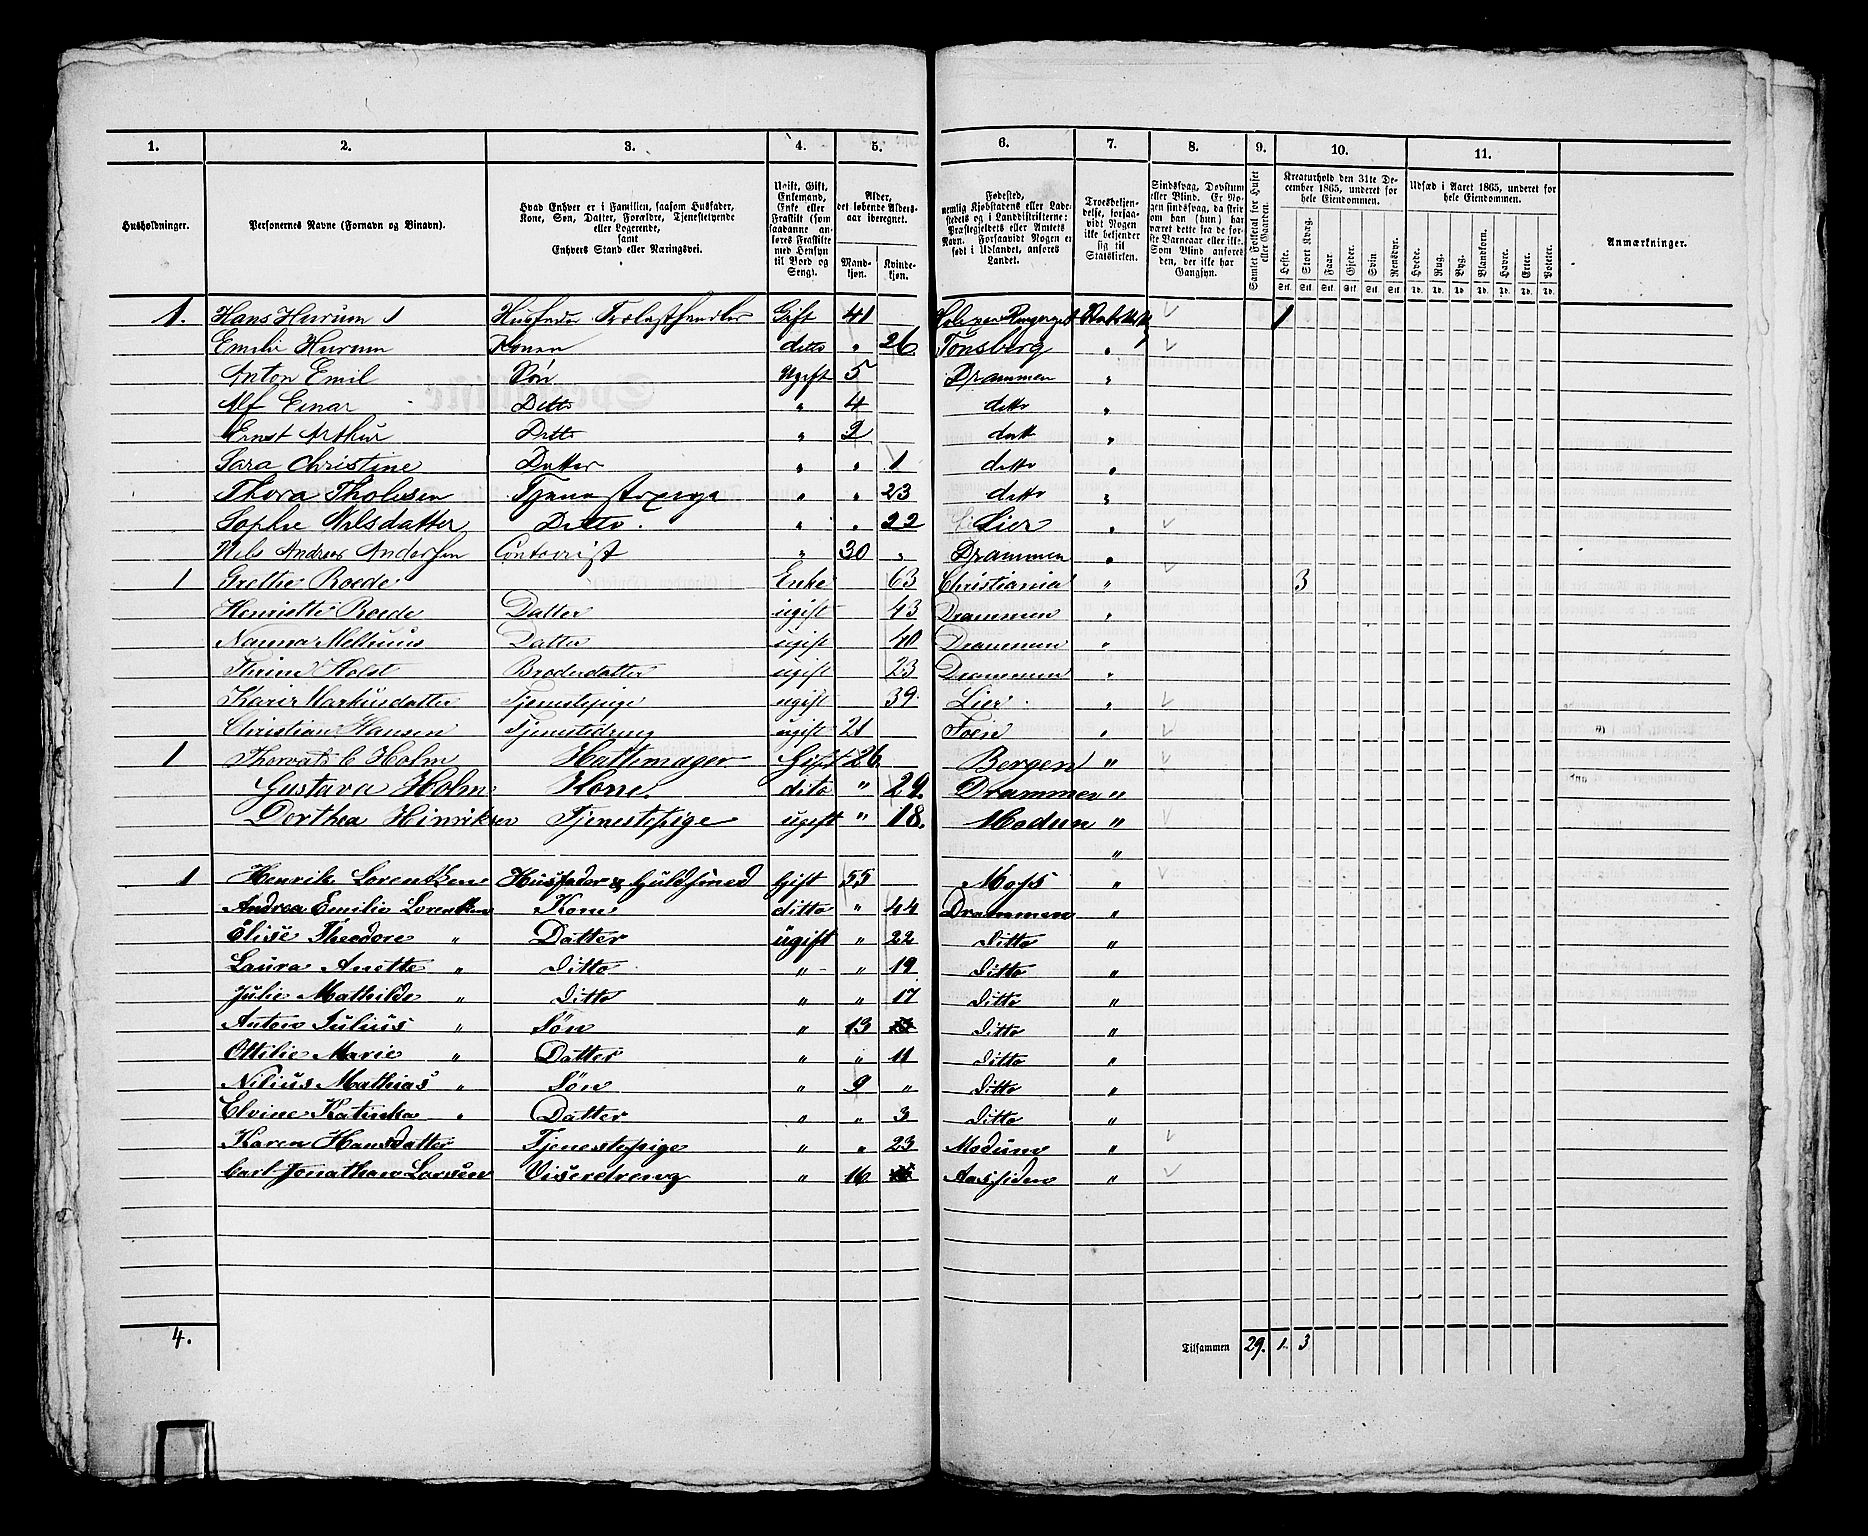 1. 2. 3. 4. 5. 6. 7. 8. 9. 10. 11.
Husholdninger. Personernes Navne (Fornavn og Binavn). Hvad Enhver er i Familien, saasom Husfader, Kone, Søn, Datter, Forældre, Tjenestetyende eller Logerende, samt Enhvers Stand eller Næringsvei. Ugift, Gift, Enkemand, Enke eller Fraskilt (som saadanne anføres Fraskilte med Hensyn til Bord og Seng). Alder, det løbende Alders-aar iberegnet. Mandkjøn. Kvindekjøn. Fødested, nemlig Kjøbstadens eller Ladestedets og i Landdistrikterne: Præstegjeldets eller Amtets Navn. Forsaavidt Nogen er født i Udlandet, anføres Landet. Troesbekjendelse, forsaavidt Nogen ikke bekjender sig til Statskirken. Sindssvag, Døvstum eller Blind. Er Nogen sindssvag, da skriv om han (hun) har været dette fra de første Barneaar eller ikke. Som Blind anføres den, der ikke har Gangsyn. Samlet Folketal for Huset eller Gaarden. Kreaturhold den 31te December 1865, underet for hele Eiendommen. Udsæd i Aaret 1865, underet for hele Eiendommen. Anmærkninger.
Heste. Stort Kvæg. Faar. Gjeder. Svin. Rensdyr. Hvede. Rug. Byg. Blandkorn. Havre. Erter. Poteter.
Stk. Stk. Stk. Stk. Stk. Stk. Td. Td. Td. Td. Td. Td. Td.
1. Hans Hurum 1 Husfader Trælasthandler Gift 41 1
Emilie Hurum Konen ditto " 26 Tønsberg "
Anton Emil Søn Ugift 5 Drammen "
Alf Einar Ditto " 4 ditto "
Ernst Arthur Ditto " 2 ditt "
Sara Christine Datter " " 1 ditto "
Thora Tholesen Tjenestepige " " 23 ditto "
Sophie Nilsdatter Ditto. " " 22 Lier "
Nils Andreas Andersen Contorist " 30 " Drammen "
1 Grethe Roede Enke 63 Christiania " 3
Henriette Roede Datter ugift 43 Drammen "
Nanna Datter ugift 40 Drammen "
Thrine Holst Broderdatter ugift 23 Drammen "
Karie Markusdatter Tjenestepige ugift 39. Lier "
Christian Hansen Tjenestedreng ugift 21 "
1 Thorvald C Holm Hattemager Gift 26 Bergen "
Gustava Holm Kone. dito " 29. Drammen "
Dorthea Hinriksen Tjenestepige ugift " 18. Modum "
"
1 Henrik Lorentzen Husfader & Guldsmed Gift 55 Moss "
Andrea Emilie Lorentzen Kone ditto " 44 Drammen "
Elise Theodore " Datter ugift " 22 Ditto "
Laura Anette " Ditto " " 19 Ditto "
Julie Mathilde " Ditto " " 17 Ditto "
Anton Julius " Søn " 13 Ditto "
Ottilie Marie " Datter " " 11 Ditto "
Nilius Mathias " Søn " 9 " Ditto "
Elvine Katinka " Datter " " 3 Ditto "
Karen Hansdatter Tjenestepige " " 23 Modum "
Carl Jonathan Larsen Viseredreng " 16 Aassiden "
4. Tilsammen 29. 1. 3